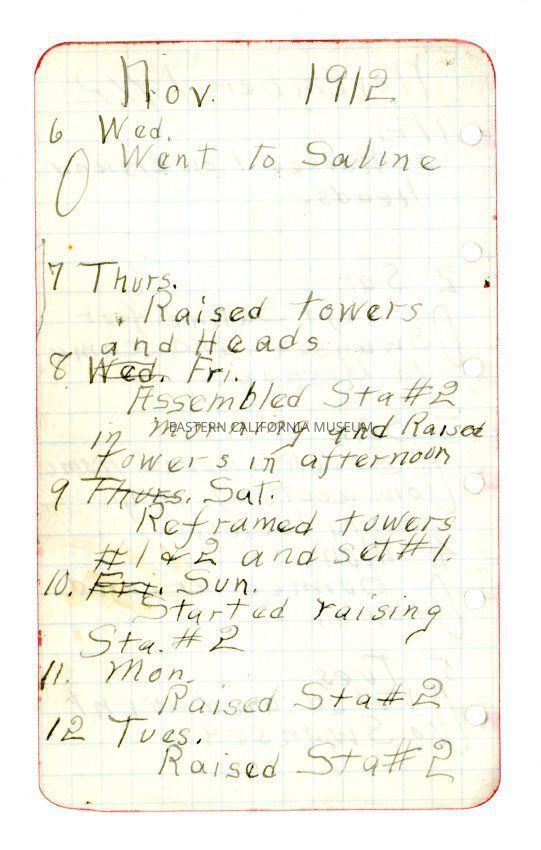 Nov. 1912
6 Wed.
Went to Saline
7 Thurs.
Raised towers
and Heads
8 Wed. Fri.
Assembled Sta #2
in morning and Raised
EASTERN CALIFORNIA MUSEUM
towers in afternoon
9 Thurs. Sat.
Reframed towers
#1 & 2 and set #1.
10. Fri. Sun.
Started raising
Sta. #2
11. Mon.
Raised Sta #2
12 Tues.
Raised Sta #2